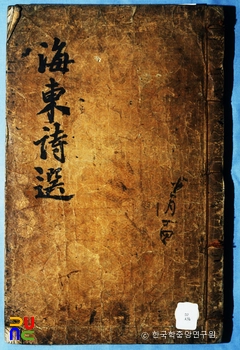 海東詩選
© 한국학중앙연구원